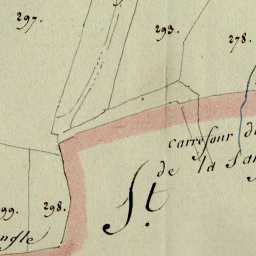 297.
293.
278.
Carrefour d
de la
St.
99.
298.
ngle